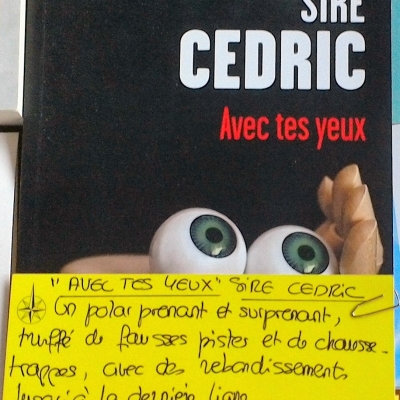 SIRE
CEDRIC
Avec tes yeux
"AVEC TES YEUX" SIRE CEDRIC
Un polar prenant et surprenant,
truffé de fausses pistes et de chausse-
trappes, avec des rebondissements
jusqu'à la dernière ligne